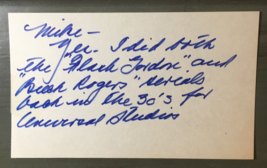 Mike –
Yes. I did both
the "Flash Gordon" and
"Buck Rogers" serials
back in the 30's for
Universal Studios